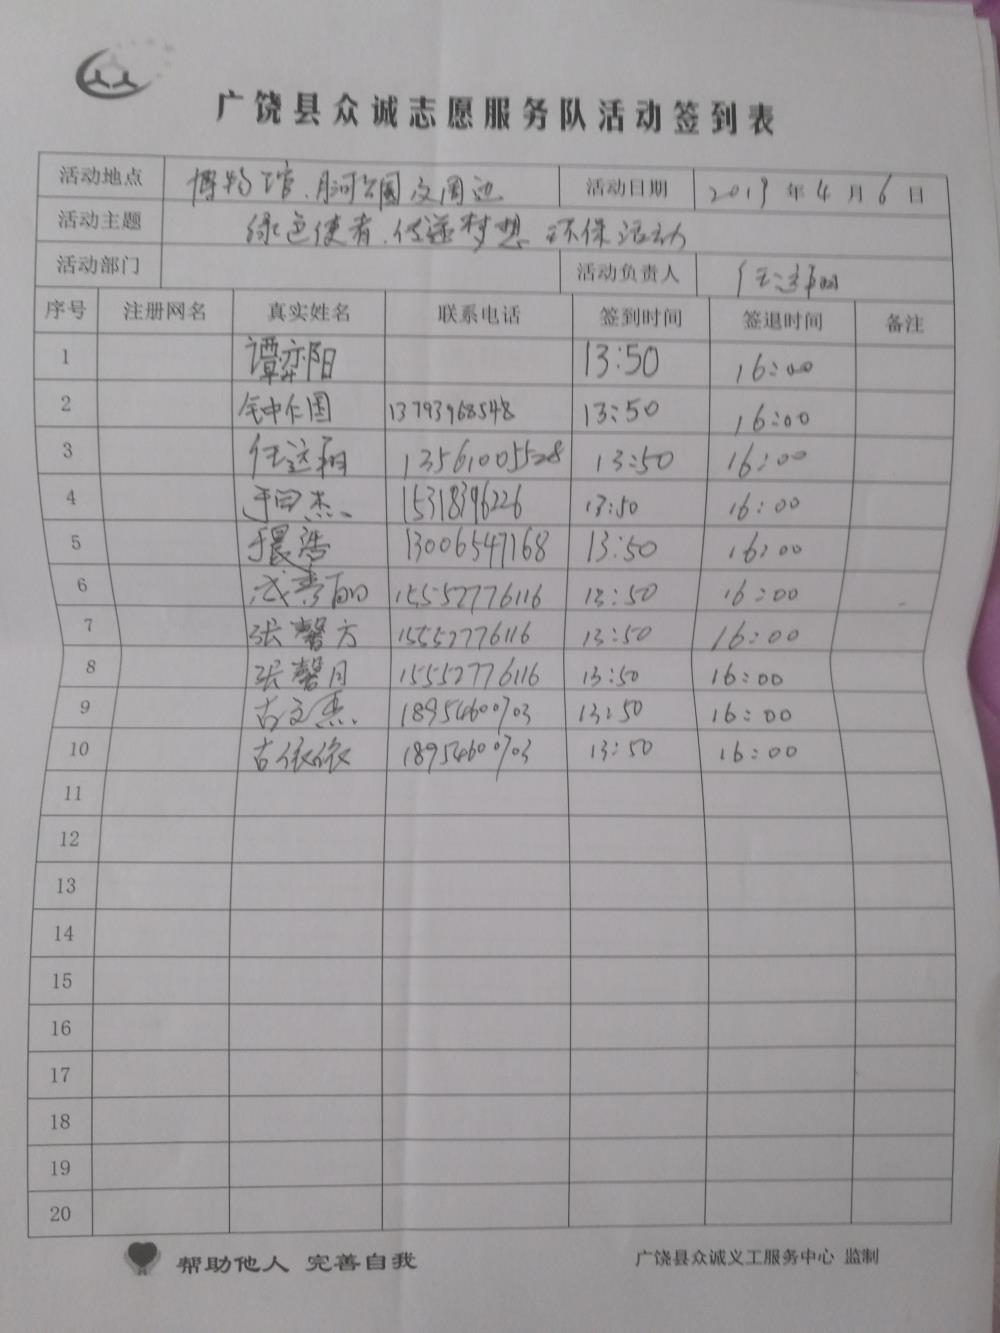 广饶县众诚志愿服务队活动签到表
活动地点 博物馆、月河公园及周边 活动日期 2019年4月6日
活动主题 绿色使者、传递梦想 环保活动
活动部门 活动负责人 任达翔
序号 注册网名 真实姓名 联系电话 签到时间 签退时间 备注
1 谭弈阳 13:50 16:00
2 钟仁国 13793968548 13:50 16:00
3 任达翔 13561005528 13:50 16:00
4 杰 15318396226 13:50 16:00
5 于晨浩 13006547168 13:50 16:00
6 成秀丽 15552776116 13:50 16:00
7 张馨方 15552776116 13:50 16:00
8 张馨月 15552776116 13:50 16:00
9 古文杰 18954600703 13:50 16:00
10 古依依 18954600703 13:50 16:00
11
12
13
14
15
16
17
18
19
20
帮助他人 完善自我 广饶县众诚义工服务中心 监制